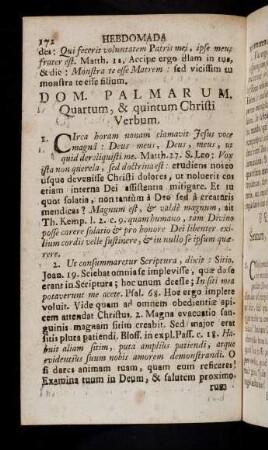 172 HEBDOMADA
des: Qui fecerit voluntatem Patris mei, ipse meus
frater est. Matth. 12. Accipe ergo illam in tua,
& dic: Monstra te esse Matrem: sed vicissim tu
monstra te esse filium.
DOM. PALMARUM.
Quartum, & quintum Christi
Verbum.
1. CIrca horam nonam clamavit Jesus voce
magnâ: Deus meus, Deus meus, ut
quid dereliquisti me. Matth. 27. S. Leo: Vox
ista non querela, sed doctrina est: erudiens nos eo
usque devenisse Christi dolores, ut noluerit eos
etiam interna Dei assistentia mitigare. Et tu
quot solatia, non tantùm à Deo sed à creaturis
mendicas? Magnum est, & valdè magnum, ait
Th. Kemp. l. 2. c. 9. quàm humano, tam Divino
posse carere solatio & pro honore Dei libenter ex-
ilium cordis velle sustinere, & in nullo se ipsum quæ-
rere.
2. Ut consummaretur Scriptura, dixit: Sitio.
Joan. 19. Sciebat omnia se implevisse, quæ de se
erant in Scriptura; hoc unum deesse; In siti mea
potaverunt me aceto. Psal. 68. Hoc ergo implere
voluit. Vide quam ad omnem obedientiæ api-
cem attendat Christus. 2. Magna evacuatio san-
guinis magnam sitim creabit. Sed major erat
sitis plura patiendi. Bloss. in expl. Pass. c. 18. Ha-
buit aliam sitim, puta amplius patiendi, atque
evidentius suum nobis amorem demonstrandi. O
si dares animam tuam, quam eum reficeres!
Examina tuum in Deum, & salutem proximo-
rum